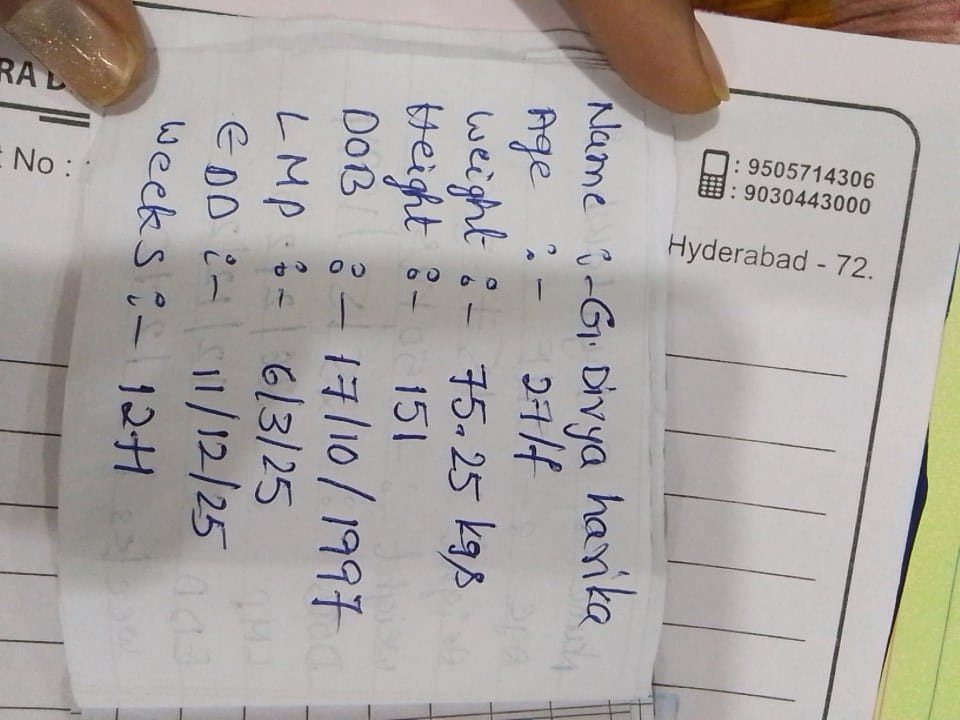 RA D
t No :
: 9505714306
: 9030443000
Hyderabad - 72.
Name :- G. Divya harika
Age :- 27/f
Weight :- 75.25 kgs
Height :- 151
DOB :- 17/10/1997
LMP :- 6/3/25
EDD :- 11/12/25
Weeks :- 12+1